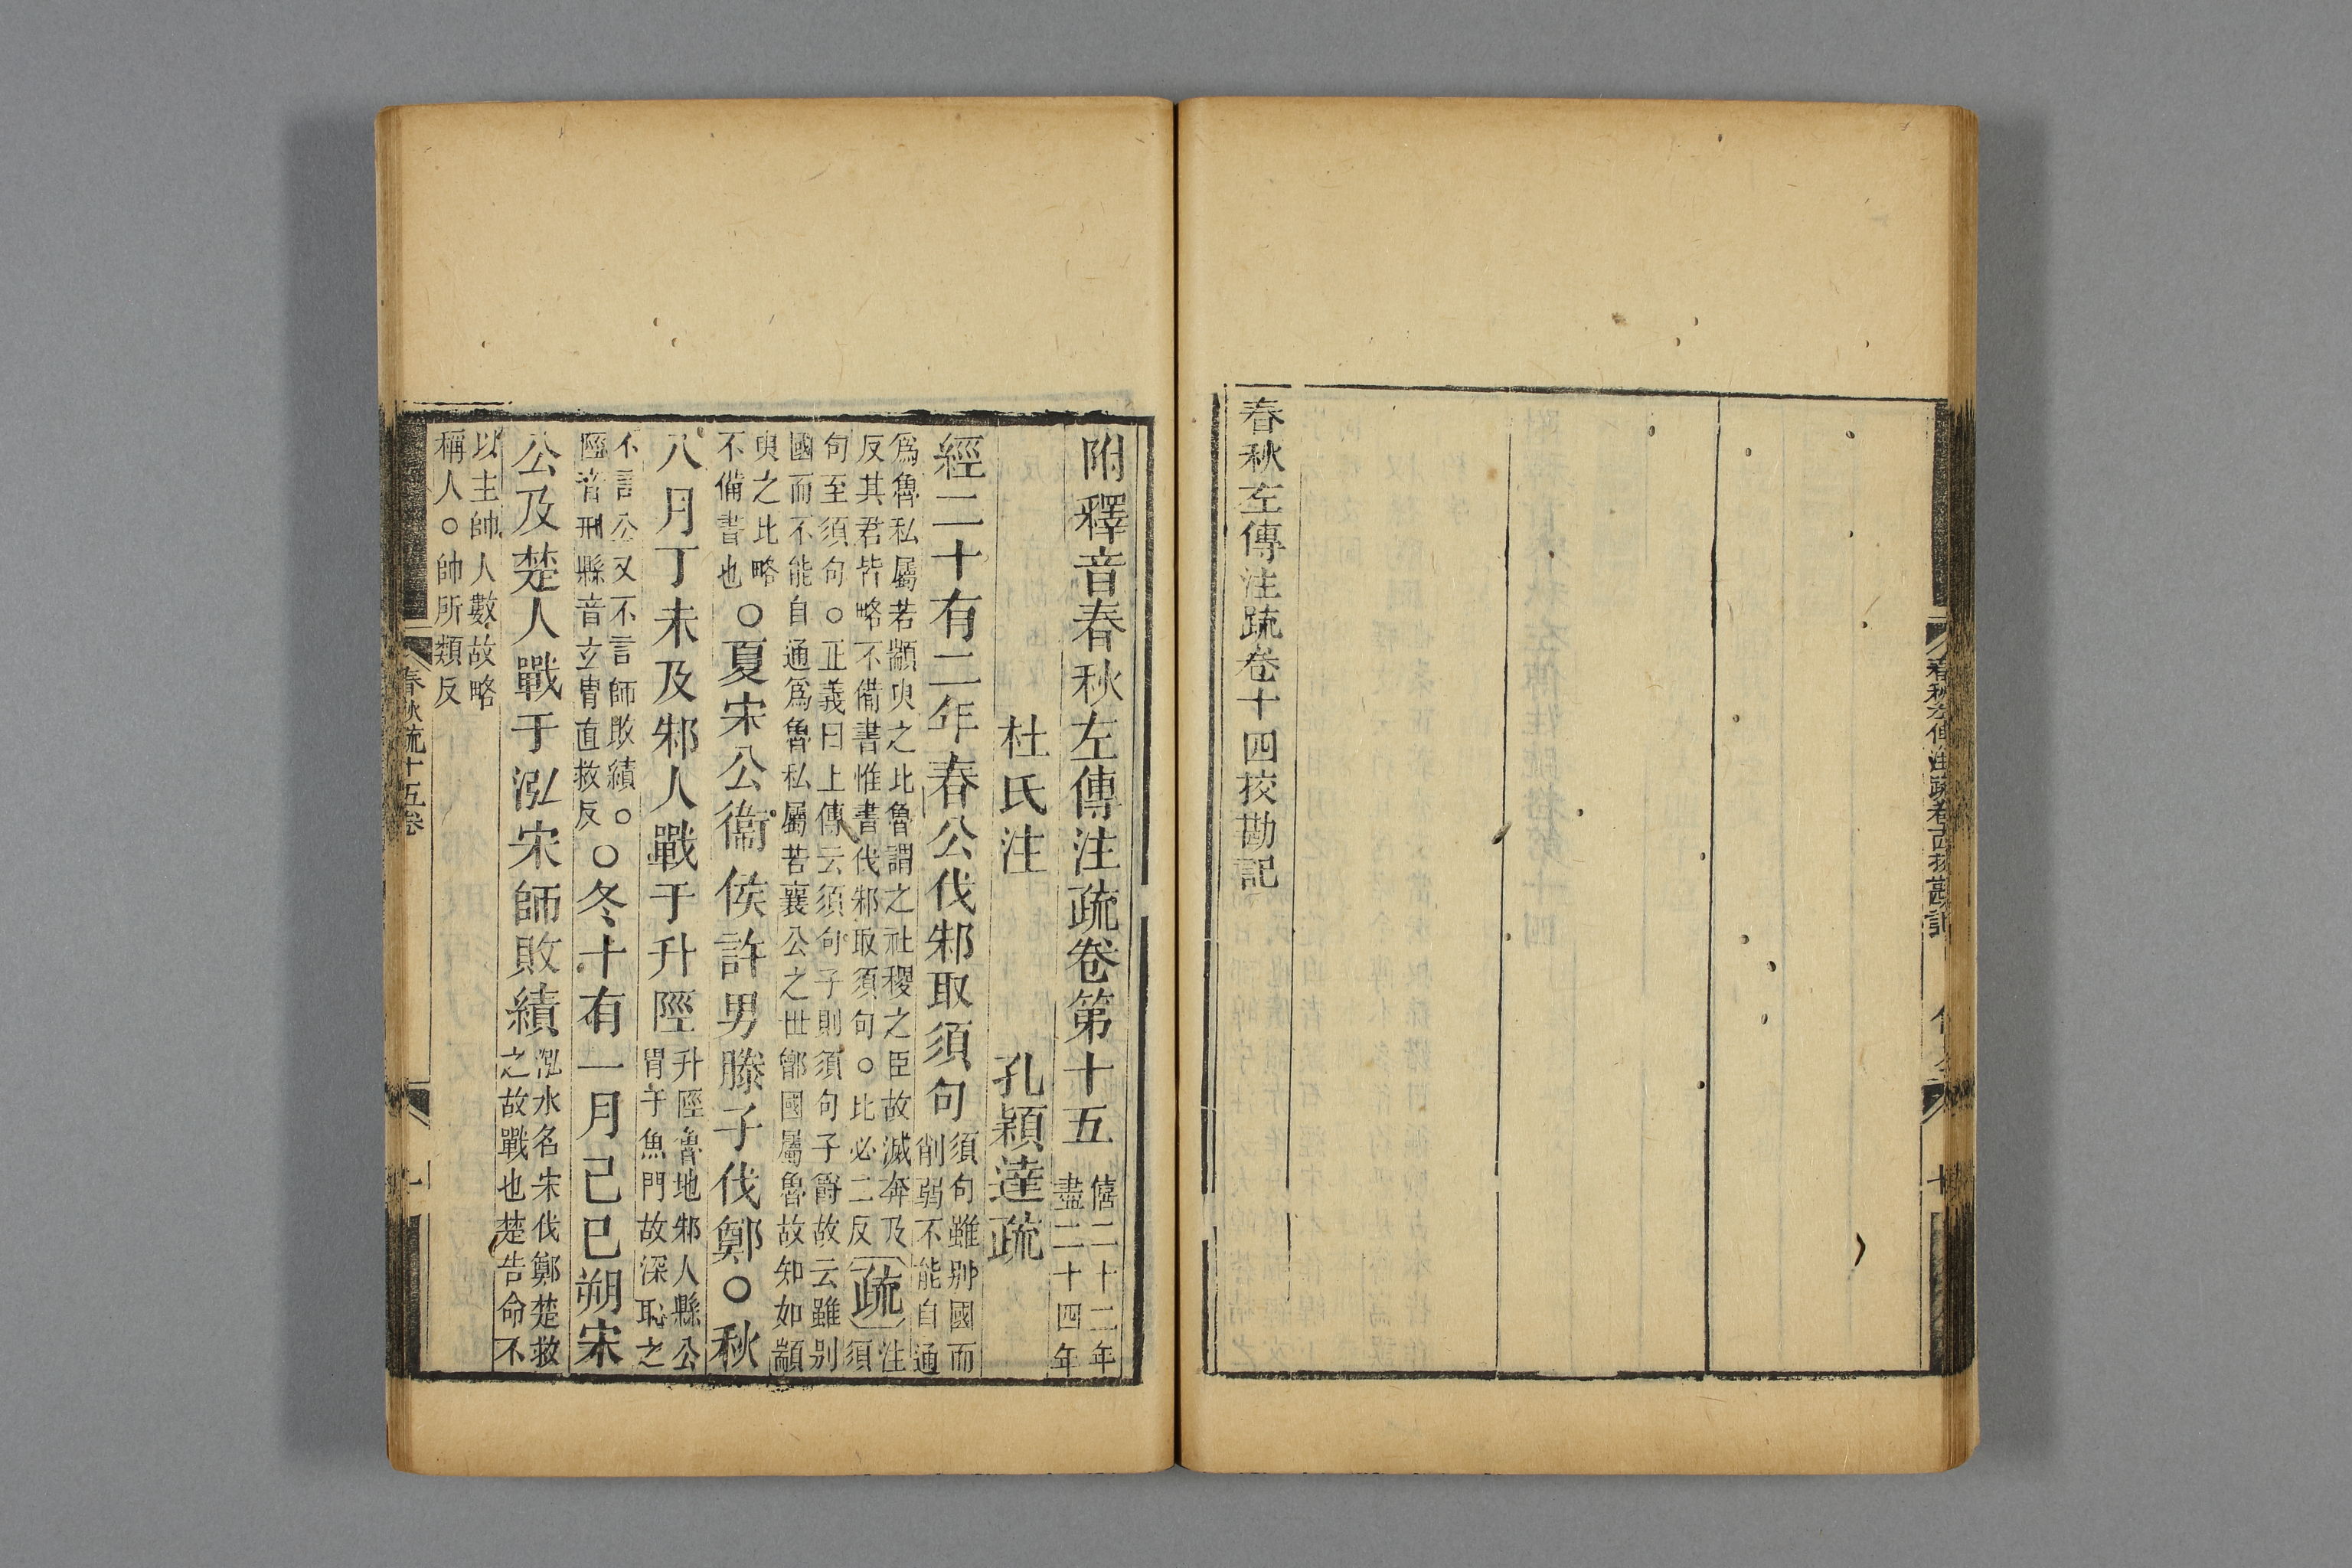 春秋左傳注疏卷十四挍勘記
附釋音春秋左傳注疏卷第十五
僖二十二年
盡二十四年
杜氏注 孔穎達疏
經二十有二年春公伐邾取須句
須句雖別國而
削弱不能自通
爲魯私屬若顓臾之比魯謂之社稷之臣故滅奔及
反其君皆略不備書惟書伐邾取須句○比必二反
疏
注
須
句至須句○正義曰上傳云須句子則須句子爵故云雖別
國而不能自通爲魯私屬若襄公之世鄫國屬魯故知如顓
臾之比略
不備書也
○夏宋公衞侯許男滕子伐鄭○秋
八月丁未及邾人戰于升陘
升陘魯地邾人縣公
冑于魚門故深恥之
不言公又不言師敗績○
陘音刑縣音玄冑直救反
○冬十有一月己巳朔宋
公及楚人戰于泓宋師敗績
泓水名宋伐鄭楚救
之故戰也楚告命不
以主帥人數故略
稱人○帥所類反
春秋疏十五卷